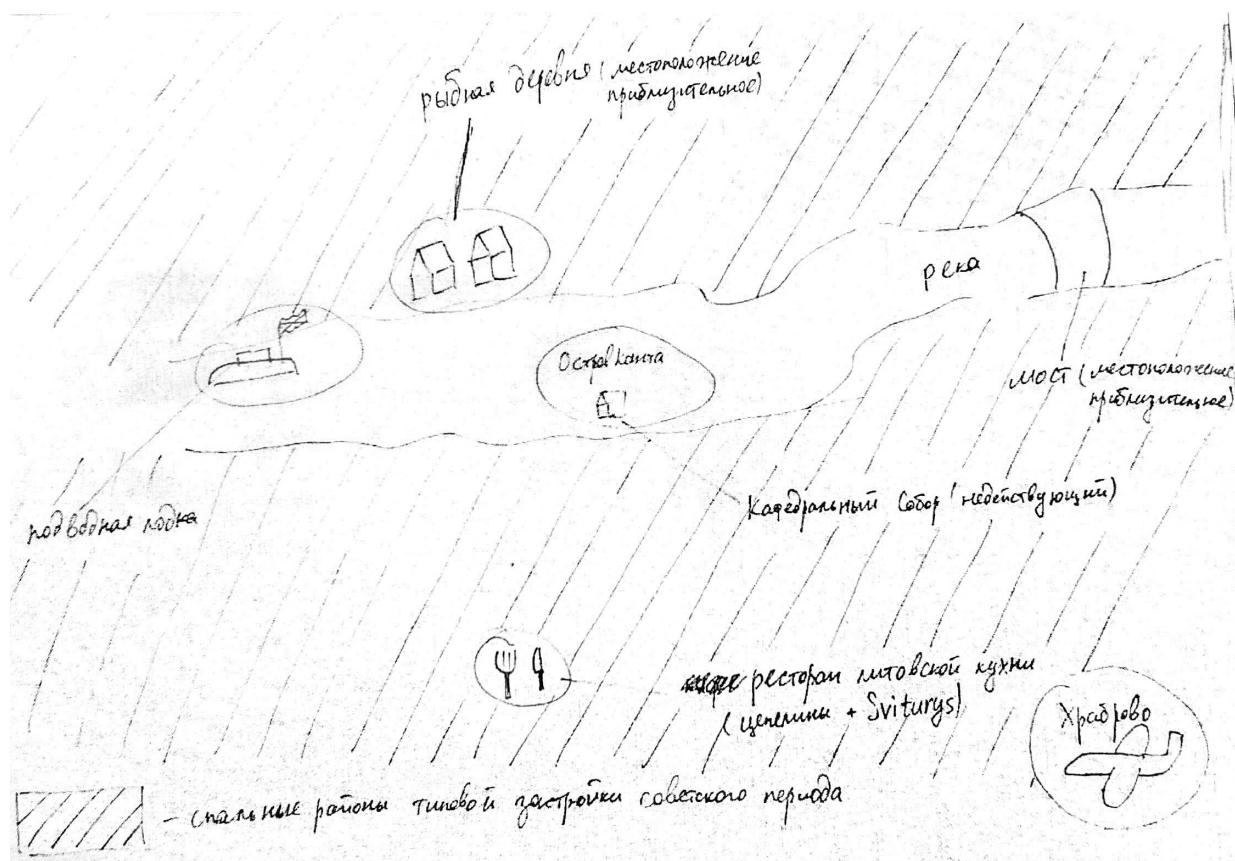 рыбная деревня (местоположение
приблизительное)
река
Остров Канта
мост (местоположение
приблизительное)
Кафедральный Собор (недействующий)
подводная лодка
ресторан литовской кухни
(цепелины + Sviturys)
Храброво
- спальные районы типовой застройки советского периода